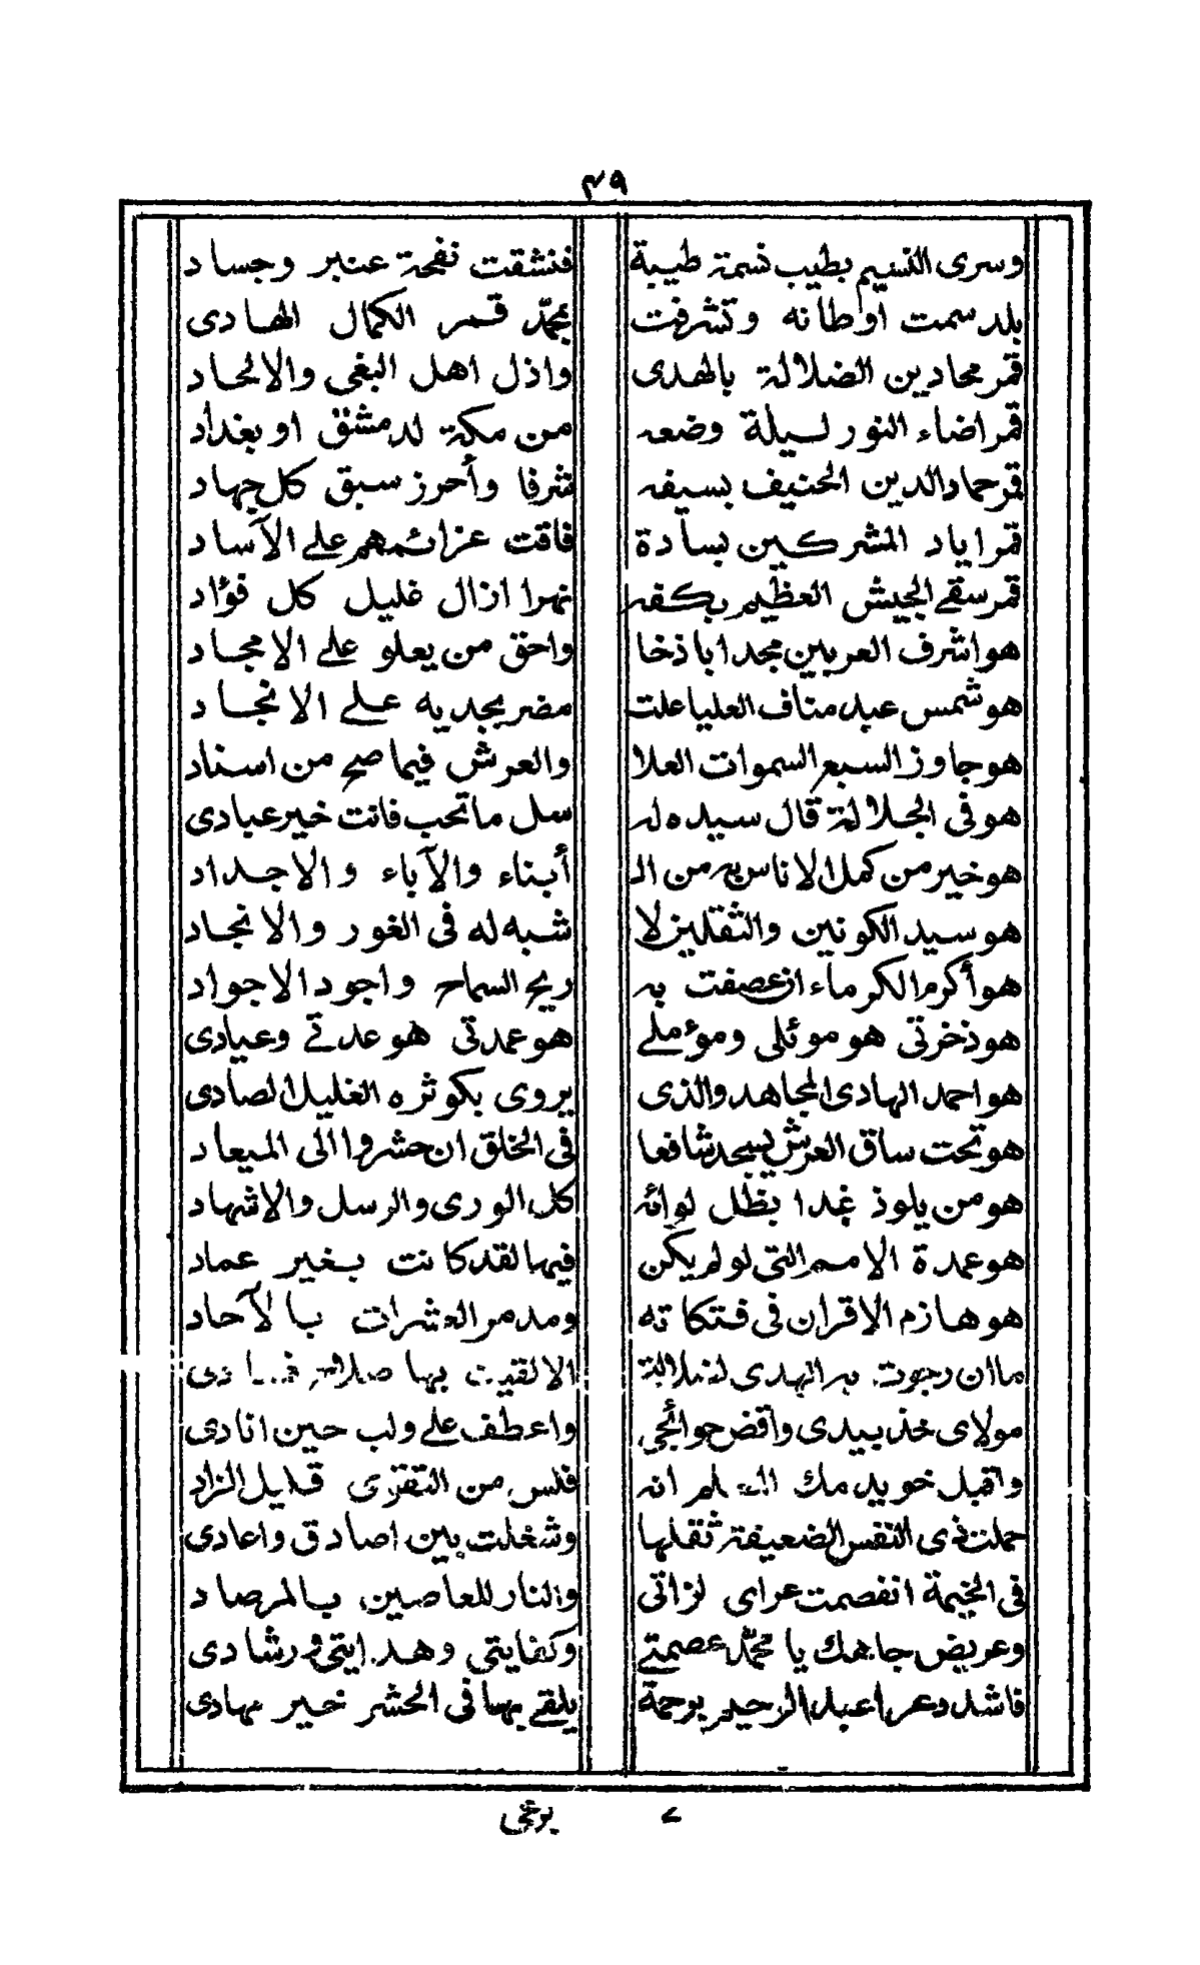 ٤٩
وسرى النسيم بطيب نسمة طيبة فنشقت نفحة عنبر وجساد
بلد سمت اوطانه وتشرفت بمحمّد قمر الكمال الهادى
قمر محادين الضلالة بالهدى واذل اهل البغى والالحاد
قمر اضاء النور ليلة وضعه من مكة لدمشق او بغداد
قمر حماد الدين الحنيف بسيفه شرفا وأحرز سبق كل جهاد
قمر اباد المشركين بسادة فاقت عزائمهم على الآساد
قمر سقى الجيش العظيم بكفه نهرا ازال غليل كل فؤاد
هو اشرف العربين مجدا باذخا واحق من يعلو على الامجاد
هو شمس عبد مناف العليا علت مضر بجديه على الانجاد
هو جاوز السبع السموات العلا والعرش فيما صح من اسناد
هو فى الجلالة قال سيده له سل ما تحب فانت خير عبادى
هو خير من كمل الاناس به من الـ أبناء والآباء والاجداد
هو سيد الكونين والثقلين لا شبه له فى الغور والانجاد
هو أكرم الكرماء ان عصفت به ريح السماح واجود الاجواد
هو ذخرتى هو موئلى ومؤملى هو عمدتى هو عدتى وعيادى
هو احمد الهادى المجاهد والذى يروى بكوثره الغليل الصادى
هو تحت ساق العرش يسجد شافعا فى الخلق ان حشروا الى الميعاد
هو من يلوذ غدا بظل لوائه كل الورى والرسل والاشهاد
هو عمدة الامم التى لو لم يكن فيها لقد كانت بغير عماد
هو هازم الاقران فى فتكاته ومدمر العشرات بالآحاد
ما ان رجوت به الهدى لضلالة الا لقيت بها صلاح
مولاى خذ بيدى واقض حوائجى واعطف على ولب حين انادى
واقبل خويدمك انه فلس من التقوى قليل الزاد
حملت ذى النفس الضعيفة ثقلها وشغلت بين اصادق واعادى
فى الخيمة انفصمت عراى لزلتى والنار للعاصين بالمرصاد
وعريض جاهك يا محمّد عصمتى وكفايتى وهدايتى ورشادى
فاشدد عرا عبد الرحيم برحمة يلقى بها فى الحشر خير مهادى
٧ برعى